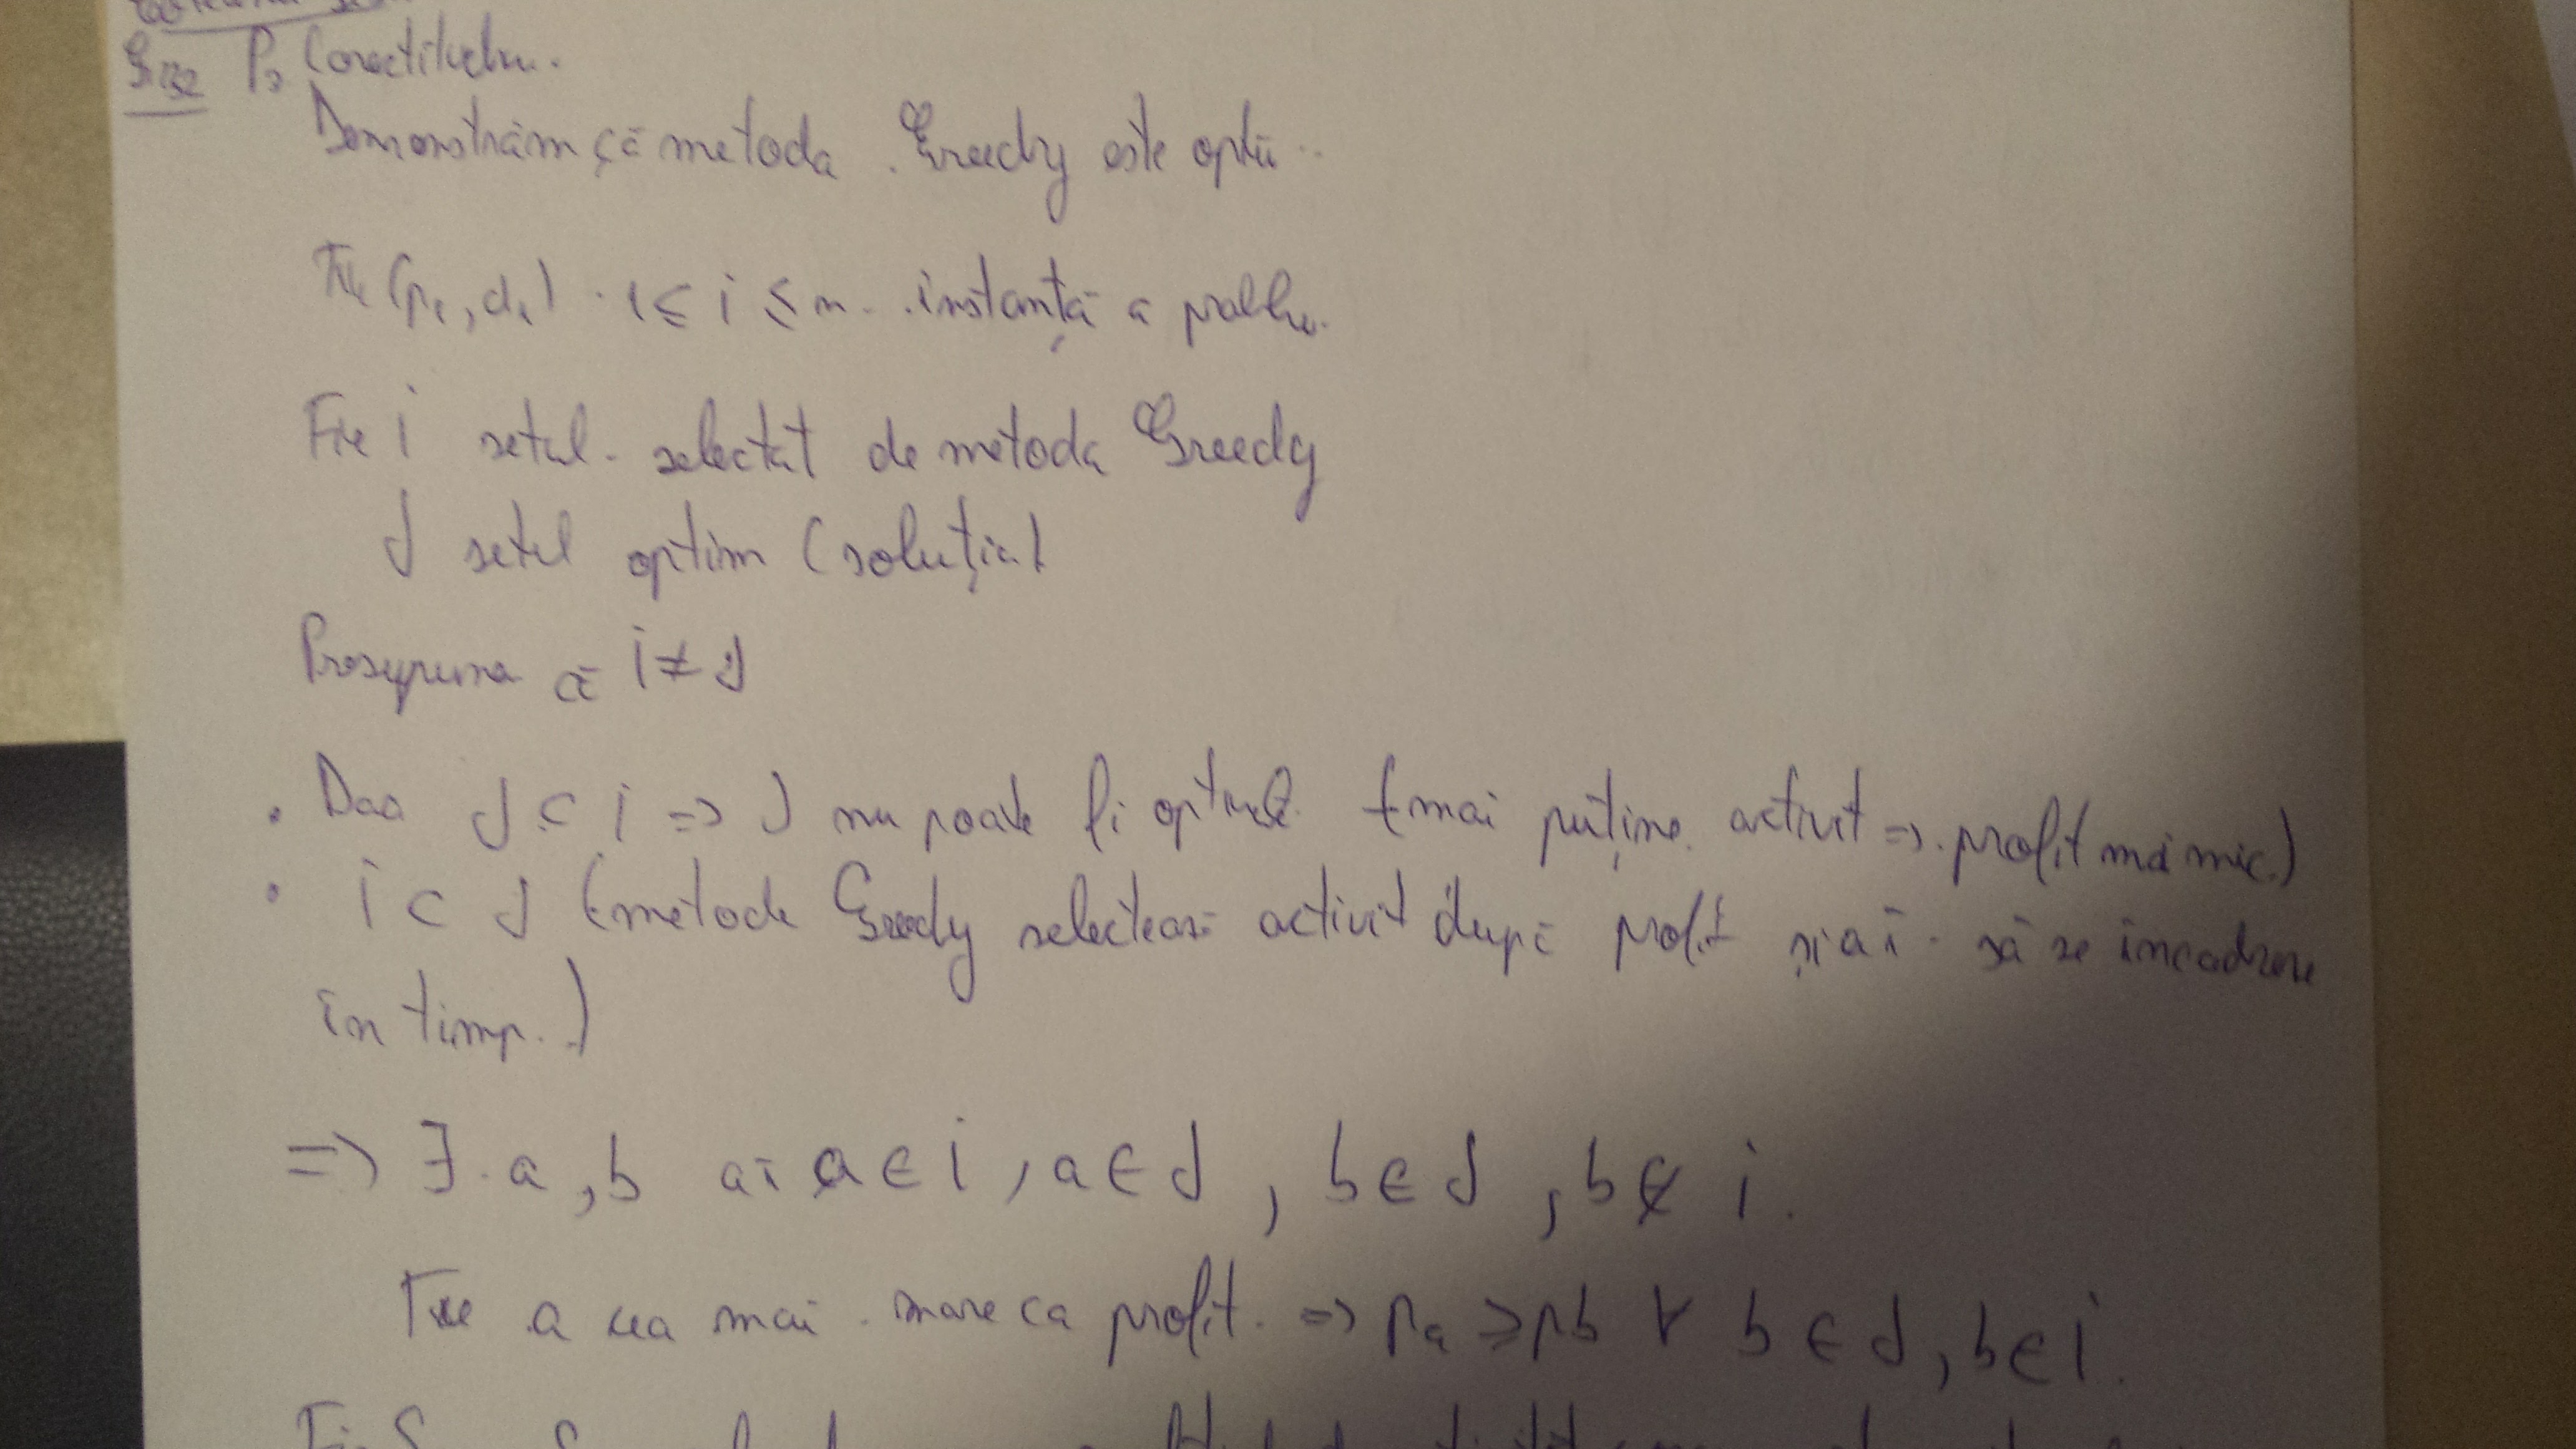 P3 Corectitudin.
Demonstrăm că metoda Greedy este opti..
Fie (pi, di) 1 ≤ i ≤ n instanță a proble.
Fie i setul selectat de metoda Greedy
J setul optim (soluția)
Presupunem că i ≠ J
• Daca J ⊂ i => J nu poate fi optimă (mai puține activit => profit mai mic.)
• i ⊂ J (metoda Greedy selectează activit după profit și aî să se încadreze
în timp.)
=> ∃ a, b aî a ∈ i, a ∈ J, b ∈ J, b ∉ i.
Fie a cea mai mare ca profit. => pa ≥ pb ∀ b ∈ J, b ∈ i.